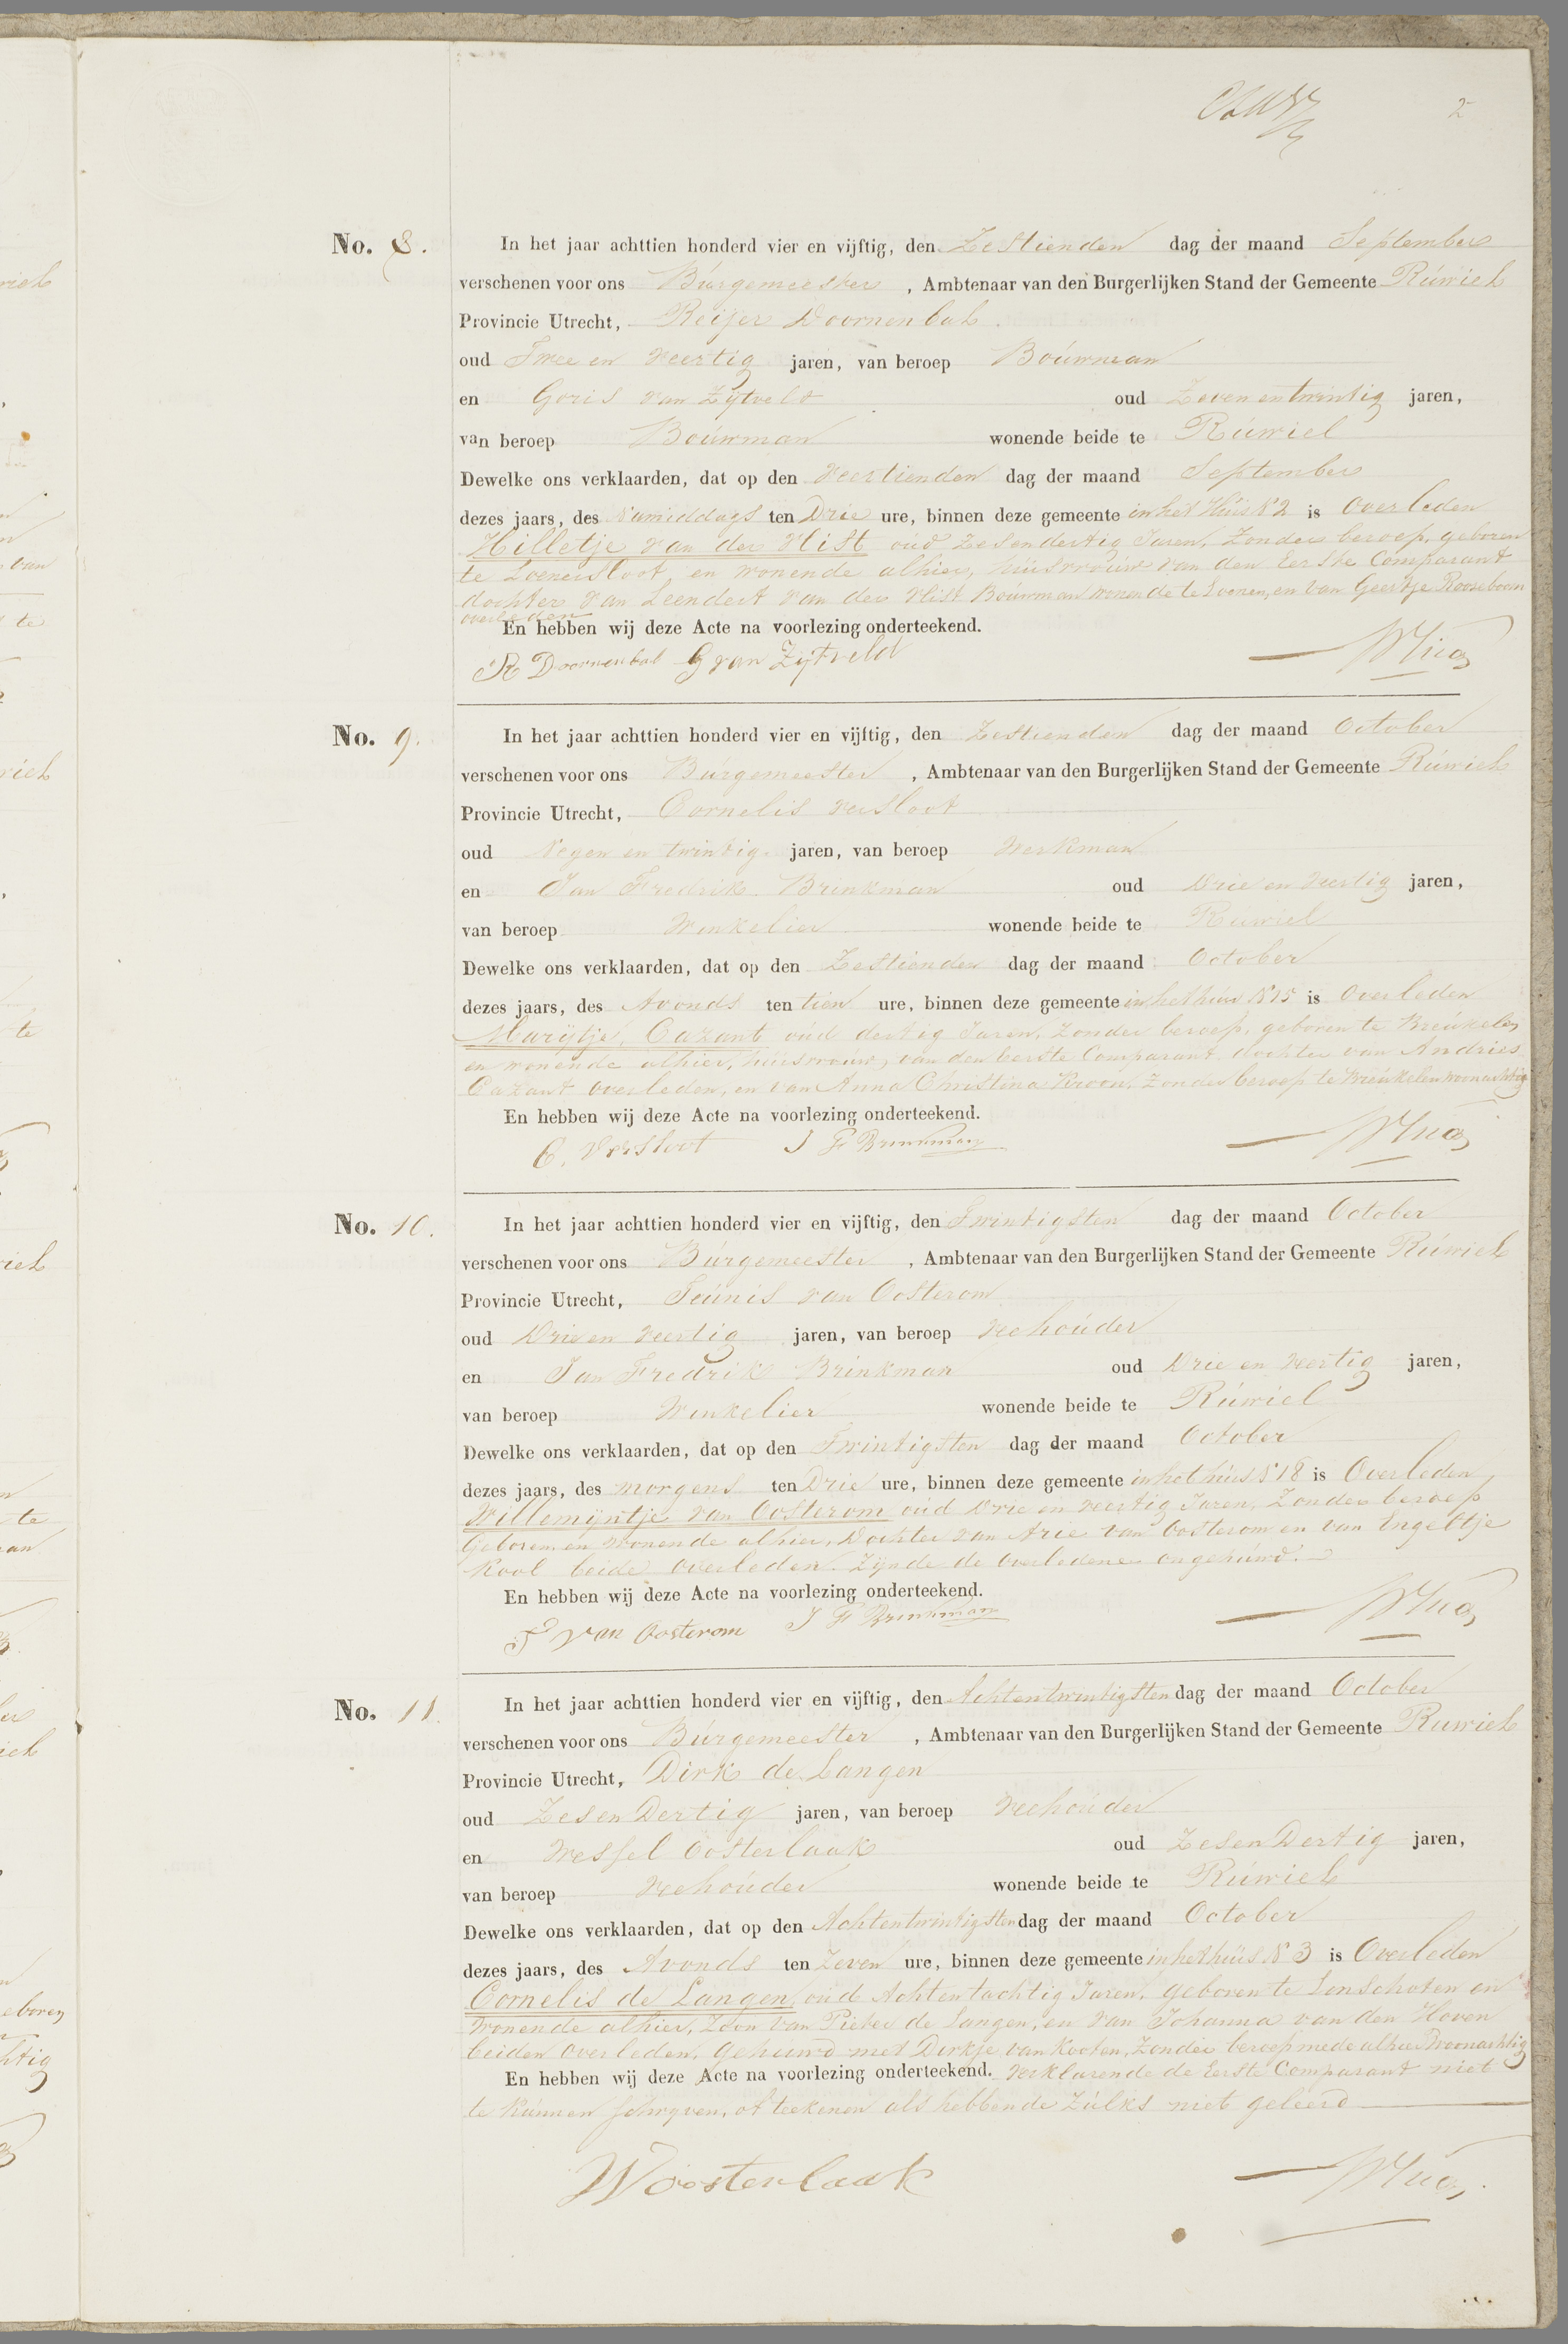 2
No. 8.
In het jaar achttien honderd vier en vijftig, den Zestienden dag der maand September
verschenen voor ons Burgemeester, Ambtenaar van den Burgerlijken Stand der Gemeente Ruwiel
Provincie Utrecht, Reijer Doornenbal
oud Twee en veertig jaren, van beroep Bouwman
en Goris van Zijtveld oud Zeven en twintig jaren,
van beroep Bouwman wonende beide te Ruwiel
Dewelke ons verklaarden, dat op den veertienden dag der maand September
dezes jaars, des Namiddags ten Drie ure, binnen deze gemeente in het Huis N 2 is Overleden
Hilletje van der Vlist oud zesendertig Jaren, Zonder beroep, geboren
te Loenersloot en wonende alhier, huisvrouw van den Eerste Comparant
dochter van Leendert van der Vlist Bouwman wonende te Loenen, en van Geertje Rooseboom
overleden
En hebben wij deze Acte na voorlezing onderteekend.
R Doornenbal G van Zijtveld
No. 9.
In het jaar achttien honderd vier en vijftig, den Zestienden dag der maand October
verschenen voor ons Burgemeester, Ambtenaar van den Burgerlijken Stand der Gemeente Ruwiel
Provincie Utrecht, Cornelis Versloot
oud Negen en twintig jaren, van beroep Werkman
en Jan Fredrik Brinkman oud Drie en veertig jaren,
van beroep Winkelier wonende beide te Ruwiel
Dewelke ons verklaarden, dat op den Zestienden dag der maand October
dezes jaars, des Avonds ten tien ure, binnen deze gemeente in het huis N 15 is Overleden
Marijtje Cazant oud dertig Jaren, Zonder beroep, geboren te Breukelen
en wonende alhier, huisvrouw van den eerste Comparant, dochter van Andries
Cazant overleden, en van Anna Christina Zonder beroep te Breukelen woonachtig
En hebben wij deze Acte na voorlezing onderteekend.
C. Versloot J F Brinkman
No. 10.
In het jaar achttien honderd vier en vijftig, den Twintigsten dag der maand October
verschenen voor ons Burgemeester, Ambtenaar van den Burgerlijken Stand der Gemeente Ruwiel
Provincie Utrecht, Teunis van Oosterom
oud Drie en veertig jaren, van beroep veehouder
en Jan Fredrik Brinkman oud Drie en veertig jaren,
van beroep Winkelier wonende beide te Ruwiel
Dewelke ons verklaarden, dat op den Twintigsten dag der maand October
dezes jaars, des morgens ten Drie ure, binnen deze gemeente in het huis N 18 is Overleden
Willemijntje van Oosterom oud Drie en veertig Jaren, Zonder beroep
Geboren en wonende alhier, Dochter van Arie van Oosterom en van Engeltje
Kool beide overleden. Zijnde de Overledene ongehuwd.
En hebben wij deze Acte na voorlezing onderteekend.
T van Oosterom J F Brinkman
No. 11.
In het jaar achttien honderd vier en vijftig, den Achtentwintigsten dag der maand October
verschenen voor ons Burgemeester, Ambtenaar van den Burgerlijken Stand der Gemeente Ruwiel
Provincie Utrecht, Dirk de Langen
oud Zesen Dertig jaren, van beroep veehouder
en Wessel Oosterlaak oud Zesen Dertig jaren,
van beroep Veehouder wonende beide te Ruwiel
Dewelke ons verklaarden, dat op den Achtentwintigsten dag der maand October
dezes jaars, des Avonds ten Zeven ure, binnen deze gemeente in het huis N 3 is Overleden
Cornelis de Langen, oud Achtentachtig Jaren, geboren te Linschoten en
wonende alhier, Zoon van Pieter de Langen, en van Johanna van den Hoven
beiden overleden, gehuwd met Dirkje van Kooten, Zonder beroep mede alhier woonachtig
En hebben wij deze Acte na voorlezing onderteekend. verklarende de Eerste Comparant niet
te kunnen schrijven, of teekenen als hebbende zulks niet geleerd
W oosterlaak